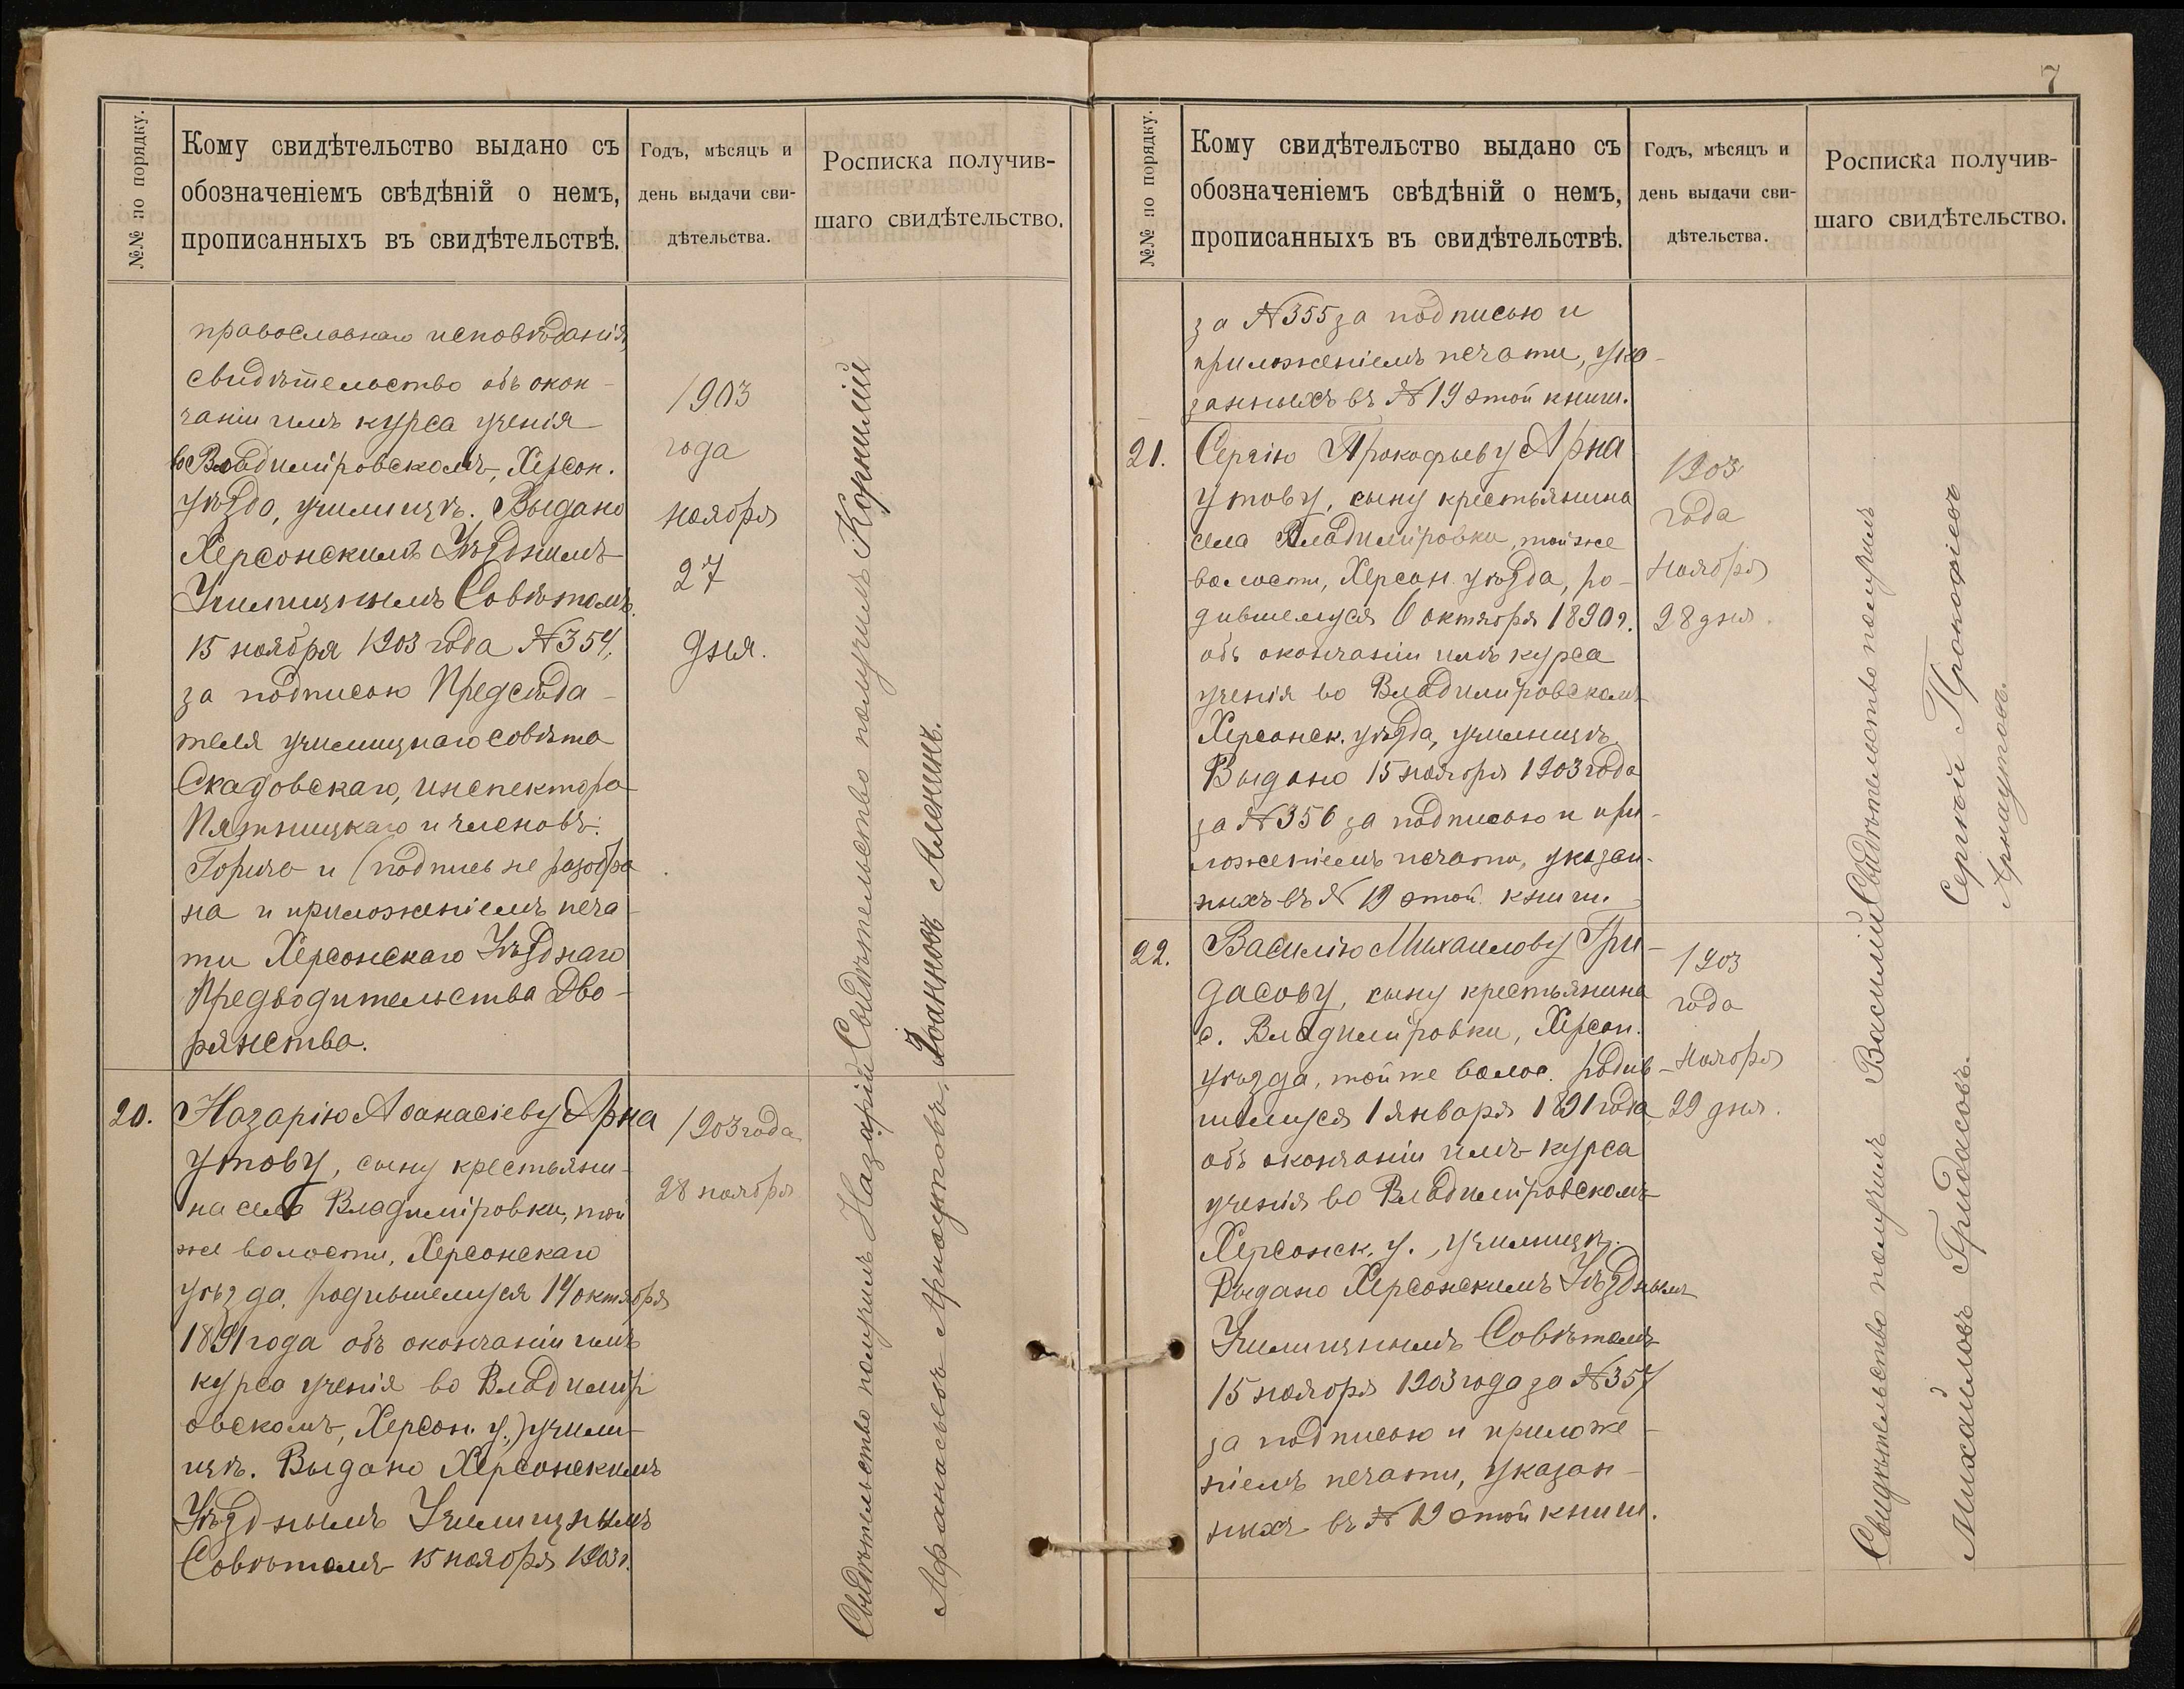 №№ по порядку.
Кому свидѣтельство выдано съ
обозначеніемъ свѣдѣній о немъ,
прописанныхъ въ свидѣтельствѣ.
Годъ, мѣсяцъ и
день выдачи сви-
дѣтельства.
Росписка получив-
шаго свидѣтельство.
православнаго исповѣданія,
свидѣтельство объ окон-
чаніи имъ курса ученія
во Владимировскомъ, Херсон.
уѣзда, училищѣ. Выдано
Херсонскимъ Уѣзднымъ
Училищнымъ Совѣтомъ
15 ноября 1903 года №354,
за подписью Предсѣда-
теля училищнаго совѣта
Скадовскаго, инспектора
Пятницкаго и членовъ:
Горича и (подпись не разобра
на и приложеніемъ печа-
ти Херсонскаго Уѣзднаго
Предводительства Дво-
рянства.
1903
года
ноября
27
дня.
Свидѣтельство получилъ Корнилій
Іоанновъ Аленинъ.
20.
Назарію Аѳанасіеву Арна
утову, сыну крестьяни-
на села Владиміровки, той
же волости, Херсонскаго
уѣзда, родившемуся 14 октября
1891 года объ окончаніи имъ
курса ученія во Владимир
овскомъ, Херсон. у.,) учили-
щѣ. Выдано Херсонскимъ
Уѣзднымъ Училищнымъ
Совѣтомъ 15 ноября 1903 г.
1903 года
28 ноября
Свидѣтельство получилъ Назарій
Афанасьевъ Арнаутовъ.
7
№№ по порядку.
Кому свидѣтельство выдано съ
обозначеніемъ свѣдѣній о немъ,
прописанныхъ въ свидѣтельствѣ.
Годъ, мѣсяцъ и
день выдачи сви-
дѣтельства.
Росписка получив-
шаго свидѣтельство.
за №355 за подписью и
приложеніемъ печати, ука-
занныхъ въ №19 этой книги.
21.
Сергію Прокофьеву Арна
утову, сыну крестьянина
села Владиміровки, той же
волости, Херсон. уѣзда, ро-
дившемуся 6 октября 1890 г.
объ окончаніи имъ курса
ученія во Владимировскомъ
Херсонск. уѣзда, училищѣ.
Выдано 15 ноября 1903 года
за №356 за подписью и при-
ложеніемъ печати, указан-
ныхъ въ № 19 этой книги.
1903
года
Ноября
28 дня.
Свидѣтельство получилъ
Сергѣй Прокофіевъ
Арнаутовъ.
22.
Василію Михаилову Гри-
дасову, сыну крестьянина
с. Владиміровки, Херсон.
уѣзда, той же волос. родив-
шемуся 1 января 1891 года
объ окончаніи имъ курса
ученія во Владимировскомъ
Херсонск. у., училищѣ.
Выдано Херсонскимъ Уѣзднымъ
Училищнымъ Совѣтомъ
15 ноября 1903 года за №357
за подписью и приложе-
ніемъ печати, указан-
ныхъ въ №19 этой книги.
1903
года
Ноября
29 дня.
Свидѣтельство получилъ Василій
Михайловъ Гридасовъ.